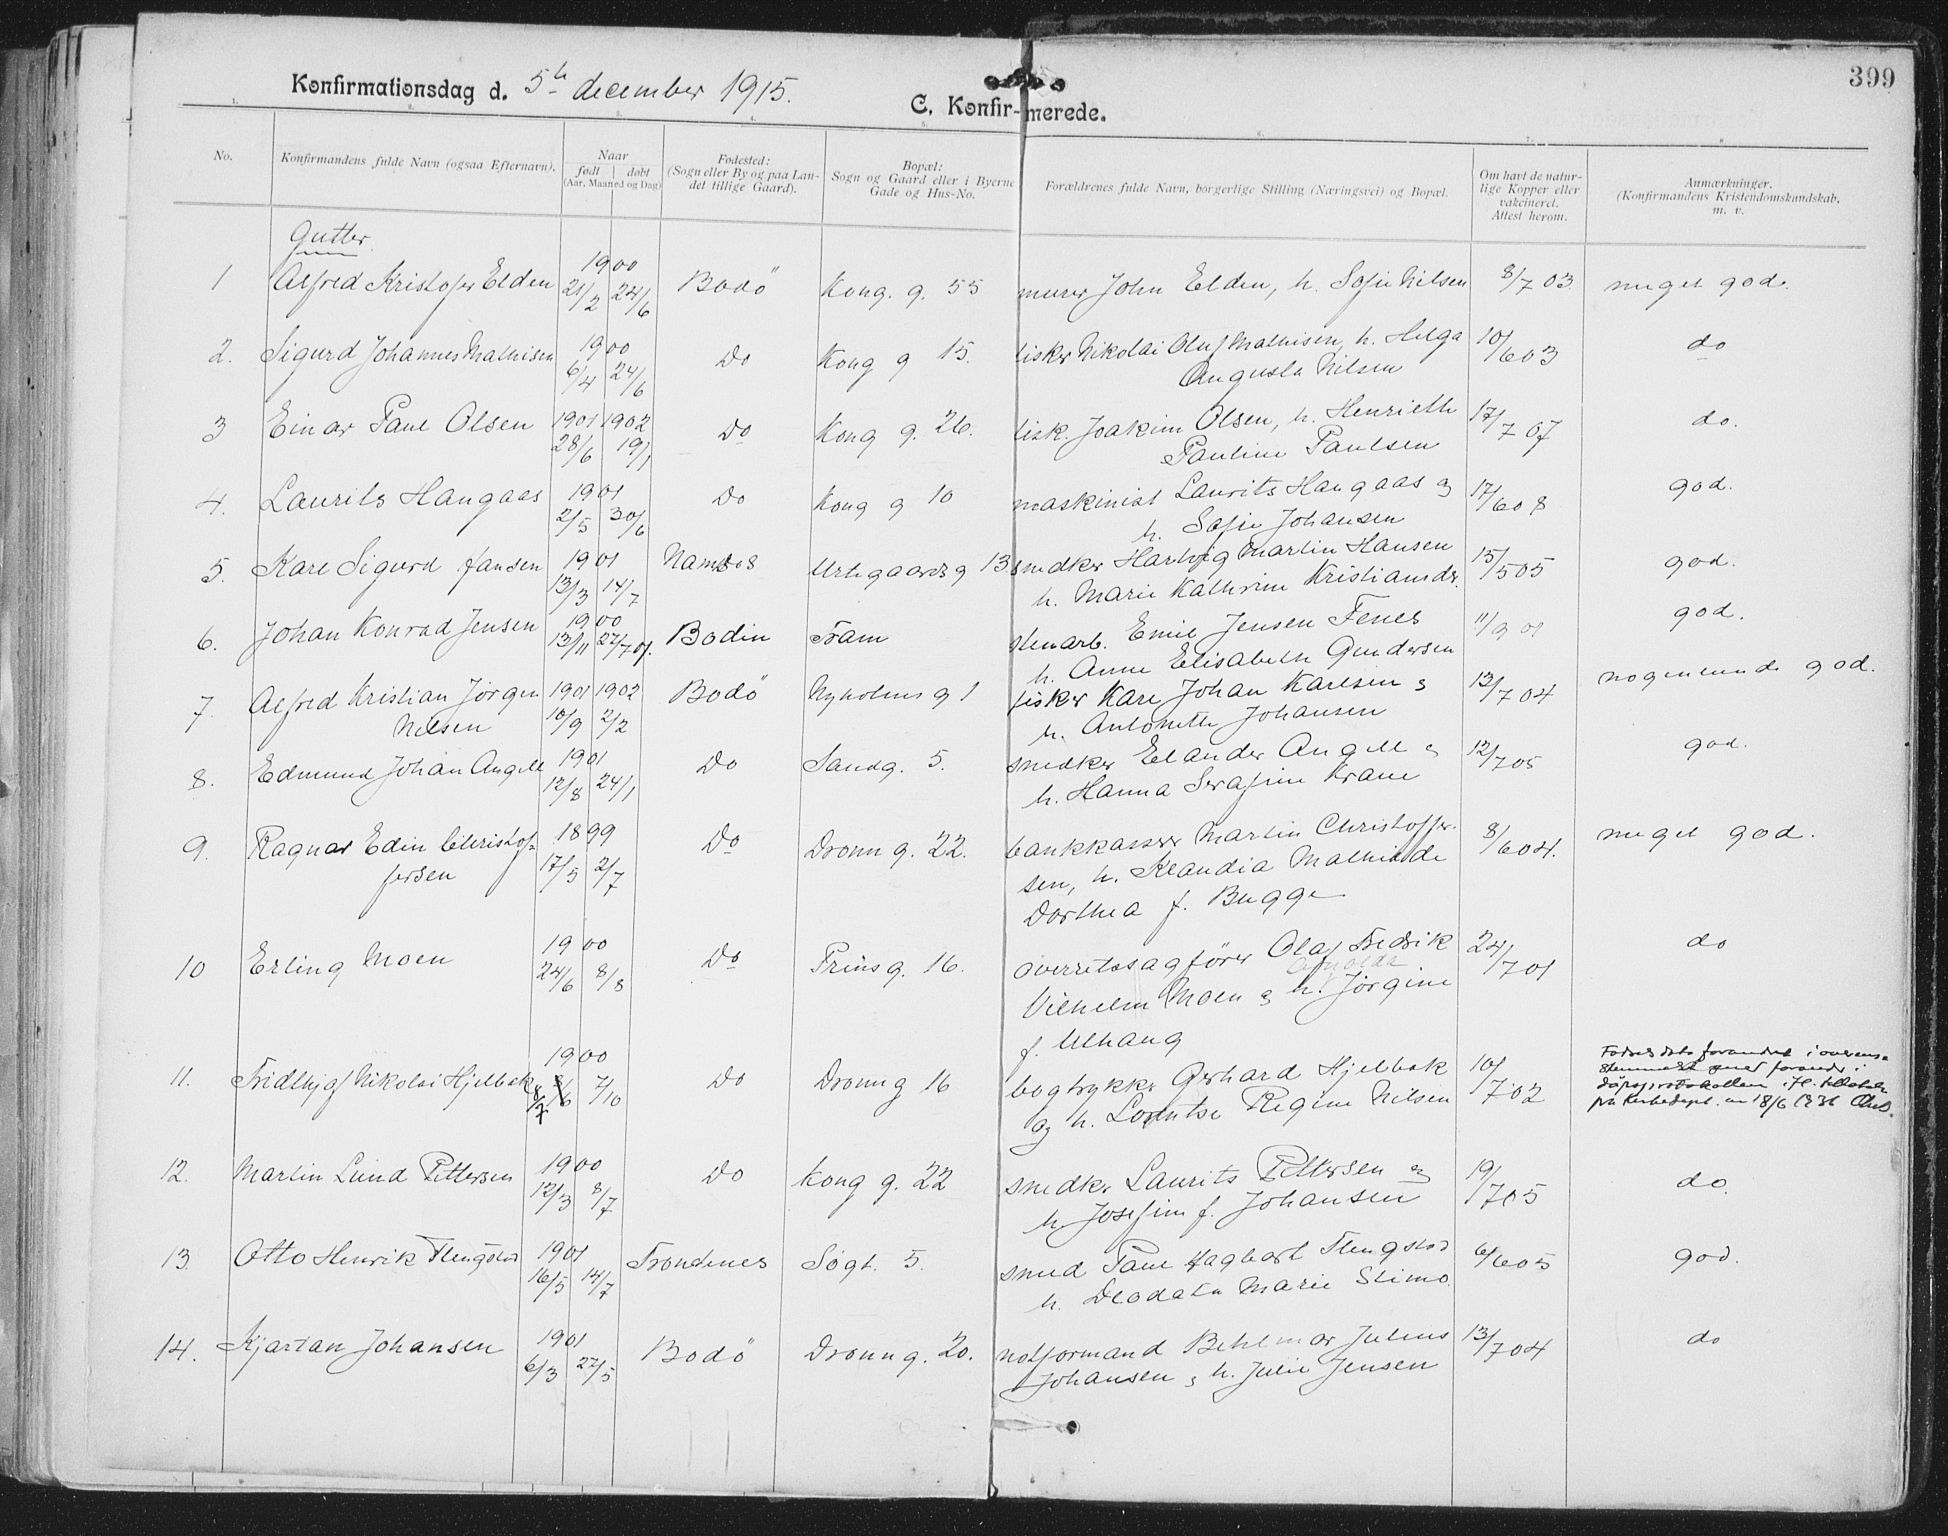 399
Konfirmationsdag d. 5te december 1915.
C. Konfirmerede.
1. 2. 3. 4. 5. 6. 7. 8.
No.
Konfirmandens fulde Navn (ogsaa Efternavn).
Naar
født døbt
(Aar, Maaned og Dag)
Fødested:
(Sogn eller By og paa Lan-
det tillige Gaard).
Bopæl:
Sogn og Gaard eller i Byerne
Gade og Hus-No.
Forældrenes fulde Navn, borgerlige Stilling (Næringsvei) og Bopæl.
Om havt de natur-
lige Kopper eller
vakcineret.
Attest herom.
Anmærkninger.
(Konfirmandens Kristendomskundskab,
m. v.
Gutter.
1 Alfred Kristofer Elden 1900 21/2 24/6 Bodö Kong. g. 55 murer John Elden, h. Sofie Nilsen 8/7 03. meget god.
2. Sigurd Johannes Mathisen 1900 6/4 24/6 Do Kong g 15. fisker Nikolai Oluf Mathisen, h. Helga 10/6 03 do
Augusta Nilsen
3 Einar Paul Olsen 1901 1902 28/6 19/1 Do Kong g. 26. fisk. Joakim Olsen, h. Henriette 17/7 07 do.
Pauline Paulsen
4. Laurits Haugaas 1901 2/5 30/6 Do Kong g 10 maskinist Laurits Haugaas og 17/6 08 god.
h. Sofie Johansen
5. Kare Sigurd Hansen 1901 13/3 14/7 Namsos Urtegaardsg 13 snedker Hartvig Martin Hansen 15/5 05 god.
h. Marie Kathrine Kristiansdr.
6. Johan Konrad Jensen 1900 13/11 27/7 01. Bodin Fram stenarb. Emil Jensen Fenes 11/9 01 god.
h. Anne Elisabeth Gundersen
7. Alfred Kristian Jörgen 1901 1902 10/9 2/2 Bodö Nyholms g 1 fisker Karl Johan Karlsen og 13/7 04 nogenlunde god.
Nilsen h. Antonette Johansen
8. Edmund Johan Angell 1901 12/8 24/1 Do Sandg. 5. snedker Elander Angell og 12/7 05 god.
h. Hanna Serafine Krane
9. Ragnar Edin Christof- 1899 17/5 2/7 Do Dronn g. 22. bankkasser Martin Christoffer- 8/6 04. meget god.
fersen sen, h. Klaudia Mathilde
Dorthea f. Bugge
10 Erling Moen 1900 24/6 8/8 Do Prins g. 16. overretssagförer Olaf Fredrik 24/7 01 do
Vilhelm Moen og h. Jörgine
f. Ulhaug
11. Fridthjof Nikolai Hjelbak 1900 7/10 Do Dronn g 16 bogtrykker Gerhard Hjelbak 10/7 02
og h. Lorntse Regine Nilsen
Födselsdato forandret i overens-
18/6 1936
12. Martin Lund Pettersen 1900 12/3 8/7 Do Kong g. 22 snedker Laurits Pettersen og 19/7 05 do.
h. Josefine f. Johansen
13. Otto Henrik Flengstad 1901 16/5 14/7 Trondenes Søgt. 5. smed Paul Hagbart Flengstad 6/6 05 god.
h. Deodata Marie Stimo.
14. Kjartan Johansen 1901 6/3 27/5 Bodö Dronn g. 20. notformand Behlmar Julius 13/7 04 do
Johansen og h. Julie Jensen